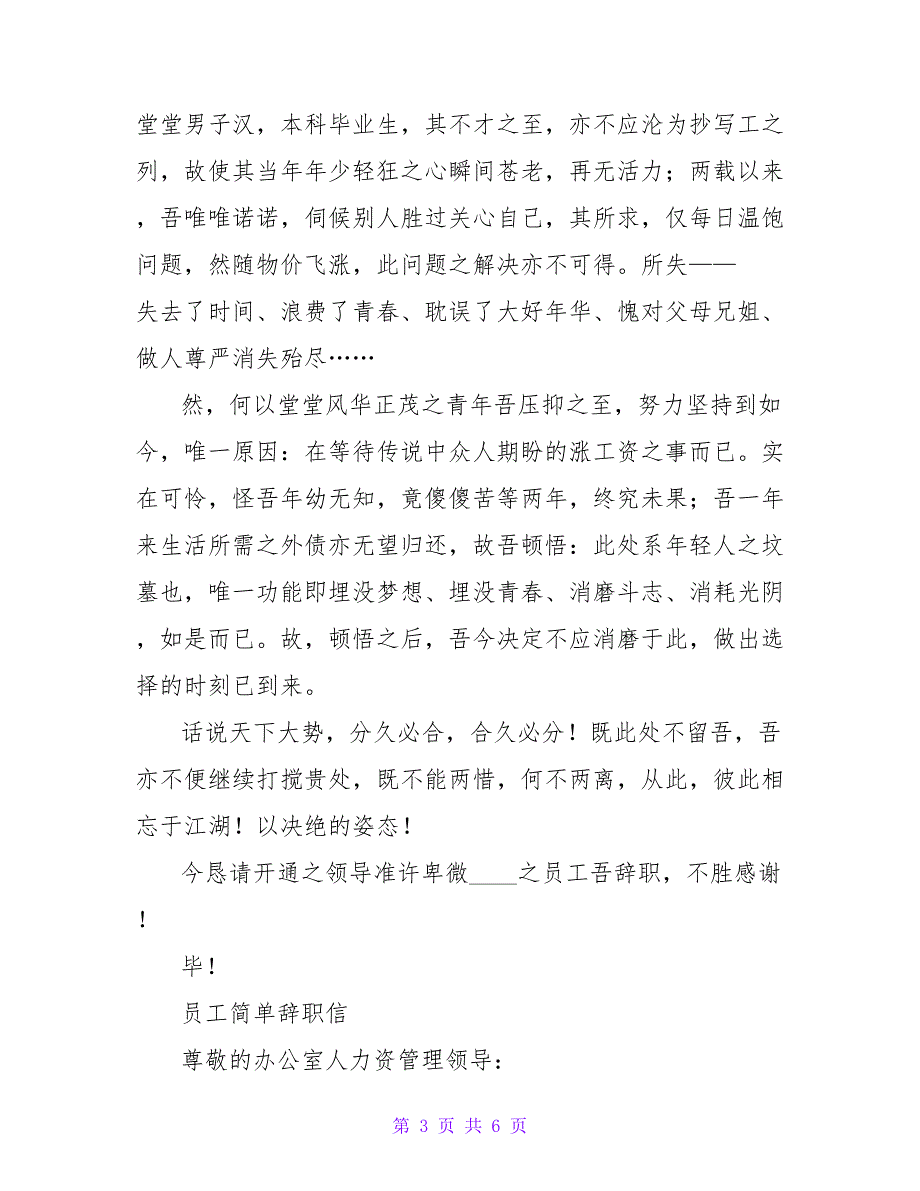 堂堂男子汉，本科毕业生，其不才之至，亦不应沦为抄写工之
列，故使其当年年少轻狂之心瞬间苍老，再无活力；两载以来
，吾唯唯诺诺，伺候别人胜过关心自己，其所求，仅每日温饱
问题，然随物价飞涨，此问题之解决亦不可得。所失——
失去了时间、浪费了青春、耽误了大好年华、愧对父母兄姐、
做人尊严消失殆尽……
然，何以堂堂风华正茂之青年吾压抑之至，努力坚持到如
今，唯一原因：在等待传说中众人期盼的涨工资之事而已。实
在可怜，怪吾年幼无知，竟傻傻苦等两年，终究未果；吾一年
来生活所需之外债亦无望归还，故吾顿悟：此处系年轻人之坟
墓也，唯一功能即埋没梦想、埋没青春、消磨斗志、消耗光阴
，如是而已。故，顿悟之后，吾今决定不应消磨于此，做出选
择的时刻已到来。
话说天下大势，分久必合，合久必分！既此处不留吾，吾
亦不便继续打搅贵处，既不能两惜，何不两离，从此，彼此相
忘于江湖！以决绝的姿态！
今恳请开通之领导准许卑微____之员工吾辞职，不胜感谢
！
毕！
员工简单辞职信
尊敬的办公室人力资管理领导：
第 3 页 共 6 页